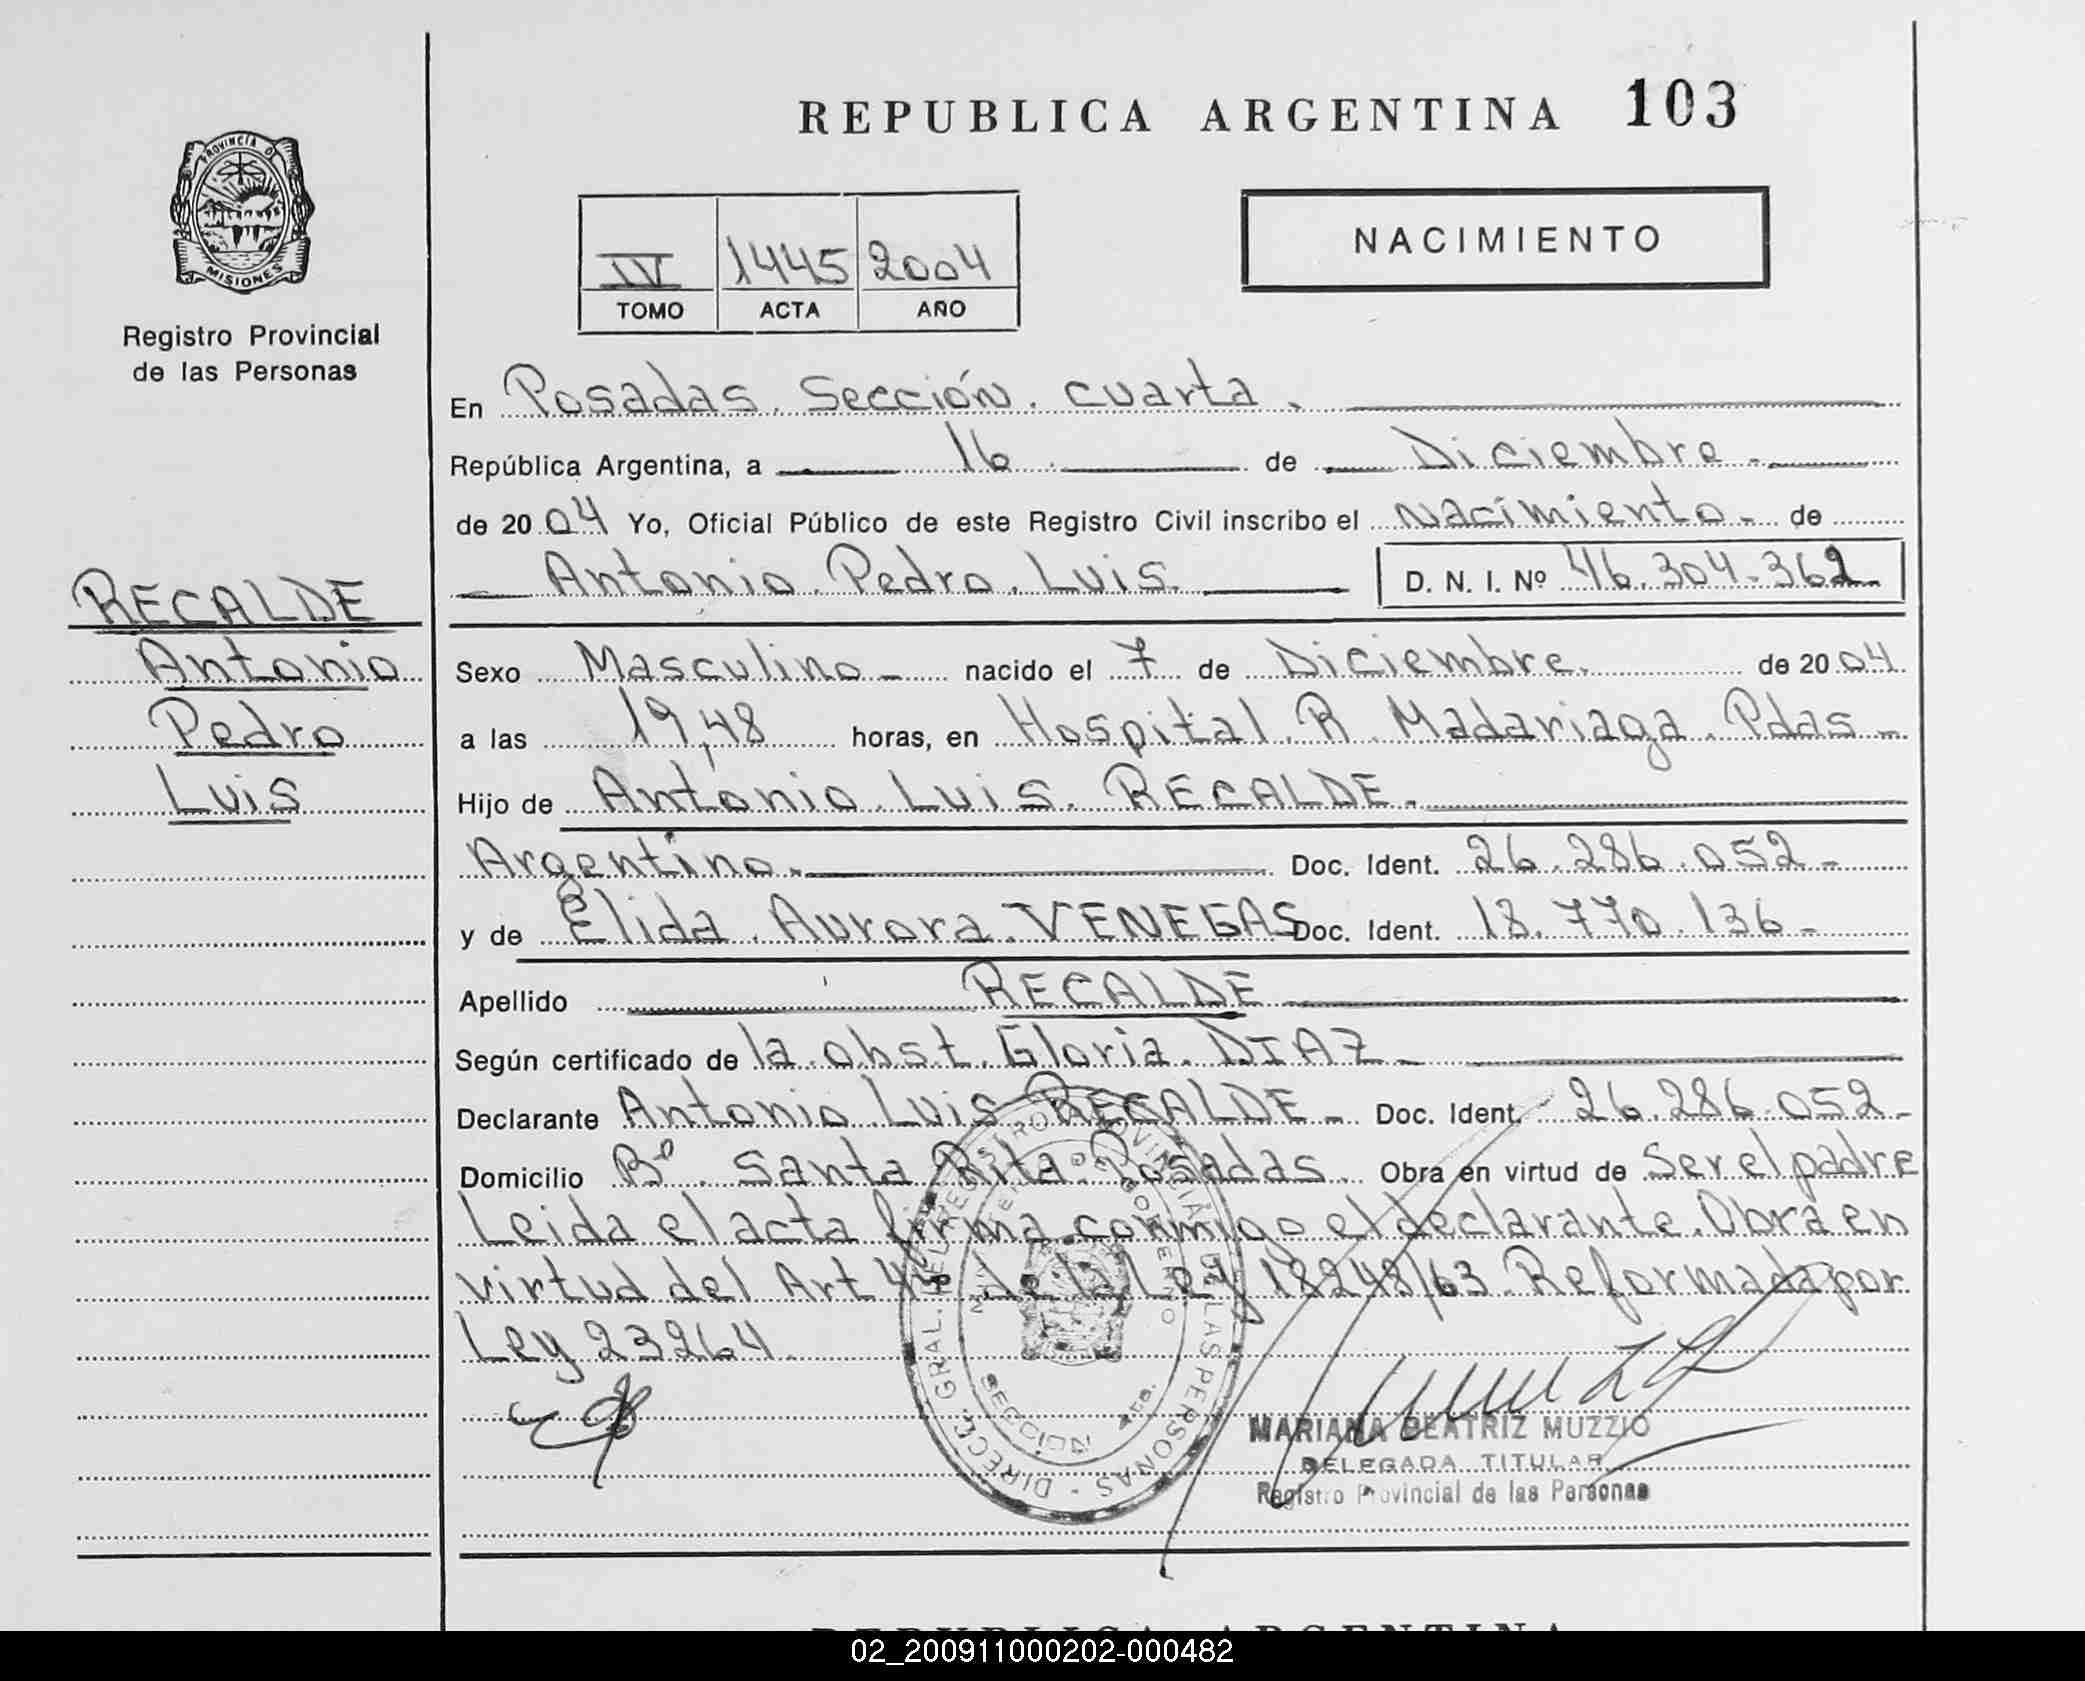 REPUBLICA ARGENTINA 103
PROVINCIA D
MISIONES
Registro Provincial
de las Personas
IV 1445 2004
TOMO ACTA AÑO
NACIMIENTO
En Posadas. Sección. cuarta.
República Argentina, a 16 de Diciembre
de 20 04 Yo, Oficial Público de este Registro Civil inscribo el Nacimiento de
Antonio Pedro Luis D. N. I. Nº 46.304.362
RECALDE
Antonio
Pedro
Luis
Sexo Masculino nacido el 7 de Diciembre de 20 04
a las 19,48 horas, en Hospital R. Madariaga. Pdas
Hijo de Antonio Luis RECALDE
Argentino Doc. Ident. 26.286.052
y de Elida Aurora VENEGAS Doc. Ident. 18.770.136
Apellido RECALDE
Según certificado de la obst. Gloria DIAZ
Declarante Antonio Luis RECALDE Doc. Ident. 26.286.052
Domicilio Bº Santa Rita Posadas Obra en virtud de Ser el padre
Leida el acta firma conmigo el declarante. Obra en
virtud del Art 44 de la Ley 18248/63 Reformada por
Ley 23264
DIRECC. GRAL. DEL REGISTRO PROVINCIAL DE LAS PERSONAS
MINISTERIO DE GOBIERNO
SECCION 4ta.
MARIANA BEATRIZ MUZZIO
DELEGADA TITULAR
Registro Provincial de las Personas
REPUBLICA ARGENTINA
02_200911000202-000482